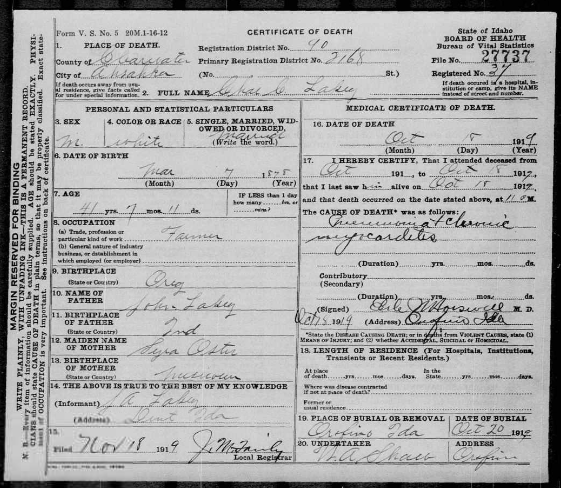 Form V. S. No. 5 20M.1-16-12
CERTIFICATE OF DEATH
State of Idaho
BOARD OF HEALTH
Bureau of Vital Statistics
1. PLACE OF DEATH.
Registration District No. 90
County of Clearwater
Primary Registration District No. 2168
File No. 27737
City of Ahsahka
(No. St.)
Registered No. 37
If death occurs away from usual residence, give facts called for under special information.
2. FULL NAME Lakey
If death occurred in a hospital, institution or camp, give its NAME instead of street and number.
PERSONAL AND STATISTICAL PARTICULARS
3. SEX M.
4. COLOR OR RACE white
5. SINGLE, MARRIED, WIDOWED OR DIVORCED, Married
(Write the word.)
6. DATE OF BIRTH
Mar 7 1878
(Month) (Day) (Year)
7. AGE
41 yrs. 7 mos. 11 ds.
IF LESS than 1 day how many hrs. or min.?
8. OCCUPATION
(a) Trade, profession or particular kind of work Farmer
(b) General nature of industry business, or establishment in which employed (or employer)
9. BIRTHPLACE
(State or Country) Oreg
10. NAME OF FATHER John Lakey
11. BIRTHPLACE OF FATHER
(State or Country) Ind
12. MAIDEN NAME OF MOTHER
13. BIRTHPLACE OF MOTHER
(State or Country) Missouri
14. THE ABOVE IS TRUE TO THE BEST OF MY KNOWLEDGE
(Informant) J. A. Lakey
(Address) Lent Ida
15.
Filed Nov 18 1919
Local Registrar
MEDICAL CERTIFICATE OF DEATH.
16. DATE OF DEATH
Oct 18 1919
(Month) (Day) (Year)
17. I HEREBY CERTIFY, That I attended deceased from
Oct 191 , to Oct 18 1919,
that I last saw him alive on Oct 18 1919,
and that death occurred on the date stated above, at 11 M.
The CAUSE OF DEATH* was as follows:
Pneumonia + Chronic
myocarditis
(Duration) yrs. mos. ds.
Contributory
(Secondary)
(Duration) yrs. mos. ds.
(Signed) M. D.
1919 (Address) Orofino Ida
*State the DISEASE CAUSING DEATH; or in deaths from VIOLENT CAUSES, state (1) MEANS OF INJURY; and (2) whether ACCIDENTAL, SUICIDAL OR HOMICIDAL.
18. LENGTH OF RESIDENCE (For Hospitals, Institutions, Transients or Recent Residents.)
At place of death yrs. mos. days. In the State yrs. mos. days.
Where was disease contracted if not at place of death?
Former or usual residence
19. PLACE OF BURIAL OR REMOVAL
Orofino Ida
DATE OF BURIAL
Oct 20 1919
20. UNDERTAKER
ADDRESS
Orofino
MARGIN RESERVED FOR BINDING
WRITE PLAINLY, WITH UNFADING INK—THIS IS A PERMANENT RECORD.
N. B. Every item of information should be carefully supplied. AGE should be stated EXACTLY. PHYSICIANS should state CAUSE OF DEATH in plain terms, so that it may be properly classified. Exact statement of OCCUPATION is very important. See instructions on back of certificate.